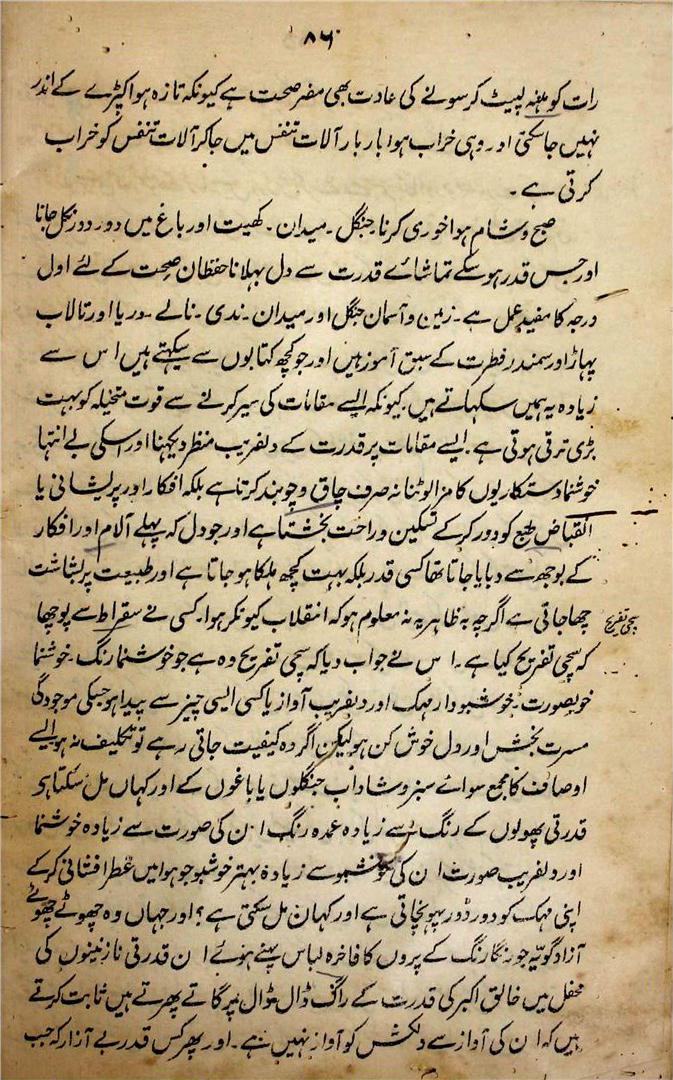 ۸۶
رات کو منہ لپیٹ کر سونے کی عادت بھی مضر صحت ہے کیونکہ تازہ ہوا کپڑے کے اندر
نہیں جا سکتی اور وہی خراب ہوا بار بار آلات تنفس میں جا کر آلات تنفس کو خراب
کرتی ہے ۔
صبح و شام ہوا خوری کرنا ۔ جنگل ۔ میدان ۔ کھیت اور باغ میں دور دور نکل جانا
اور جس قدر ہو سکے تماشائے قدرت سے دل بہلانا حفظان صحت کے لئے اول
درجہ کا مفید عمل ہے ۔ زمین و آسمان جنگل اور میدان ۔ ندی ۔ نالے ۔ دریا اور تالاب
پہاڑ اور سمندر فطرت کے سبق آموز ہیں اور جو کچھ کتابوں سے سیکہتے ہیں اس سے
زیادہ یہ ہمیں سکہاتے ہیں ۔ کیونکہ ایسے مقامات کی سیر کرنے سے قوت متخیلہ کو بہت
بڑی ترقی ہوتی ہے ۔ ایسے مقامات پر قدرت کے دلفریب منظر دیکہنا اور اسکی بے انتہا
خوشنما دستکاریوں کا مزا لوٹنا نہ صرف چاق و چوبند کرتا ہے بلکہ افکار اور پریشانی یا
انقباض طبع کو دور کر کے تسکین و راحت بخشتا ہے اور جو دل کہ پہلے آلام اور افکار
کے بوجھ سے دبا یا جاتا تھا کسی قدر بلکہ بہت کچھ ہلکا ہو جاتا ہے اور طبیعت پر بشاشت
چھا جاتی ہے اگرچہ بہ ظاہر یہ نہ معلوم ہو کہ انقلاب کیونکر ہوا ۔ کسی نے سقراط سے پوچھا
سچی تفریح
کہ سچی تفریح کیا ہے ۔ اس نے جواب دیا کہ سچی تفریح وہ ہے جو خوشنما رنگ ۔ خوشنما
خوبصورت ۔ خوشبودار مہک اور دلفریب آواز یا کسی ایسی چیز سے پیدا ہو جسکی موجودگی
مسرت بخش اور دل خوش کن ہو لیکن اگر وہ کیفیت جاتی رہے تو تکلیف نہ ہو ایسے
اوصاف کا مجمع سوائے سبز و شاداب جنگلوں یا باغوں کے اور کہاں مل سکتا ہے
قدرتی پھولوں کے رنگ سے زیادہ عمدہ رنگ ان کی صورت سے زیادہ خوشنما
اور دلفریب صورت ان کی خوشبو سے زیادہ بہتر خوشبو جو ہوا میں عطر افشانی کر کے
اپنی مہک کو دور دور پہونچاتی ہے اور کہان مل سکتی ہے ؟ اور جہاں وہ چھوٹے چھوٹے
آزاد گویّے جو رنگا رنگ کے پروں کا فاخرہ لباس پہنے ہوئے ان قدرتی نازنینوں کی
محفل میں خالق اکبر کی قدرت کے راگ ڈال ڈال پر گاتے پھرتے ہیں ثابت کرتے
ہیں کہ ان کی آواز سے دلکش کو آواز نہیں ہے ۔ اور پھر کس قدر بے آزار کہ جب